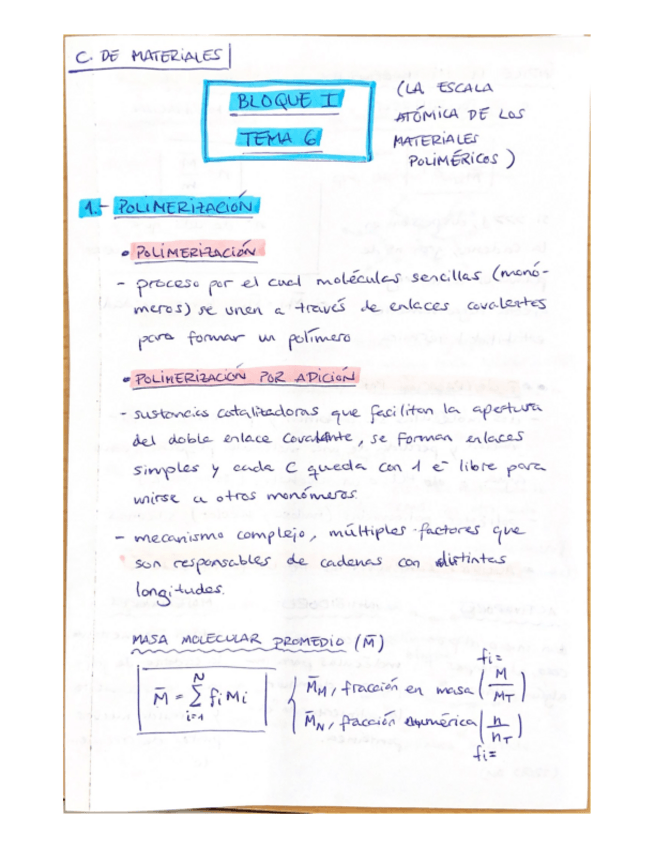 C. DE MATERIALES
BLOQUE I
TEMA 6
(LA ESCALA
ATÓMICA DE LOS
MATERIALES
POLIMÉRICOS)
1.- POLIMERIZACIÓN
• POLIMERIZACIÓN
- proceso por el cual moléculas sencillas (monó-
meros) se unen a través de enlaces covalentes
para formar un polímero
• POLIMERIZACIÓN POR ADICIÓN
- sustancias catalizadoras que facilitan la apertura
del doble enlace covalente, se forman enlaces
simples y cada C queda con 1 e⁻ libre para
unirse a otros monómeros.
- mecanismo complejo, múltiples factores que
son responsables de cadenas con distintas
longitudes.
MASA MOLECULAR PROMEDIO (M̄)
M̄ = Σ fi Mi
N
i=1
fi =
M̄M, fracción en masa (M/MT)
M̄N, fracción numérica (n/nT)
fi =